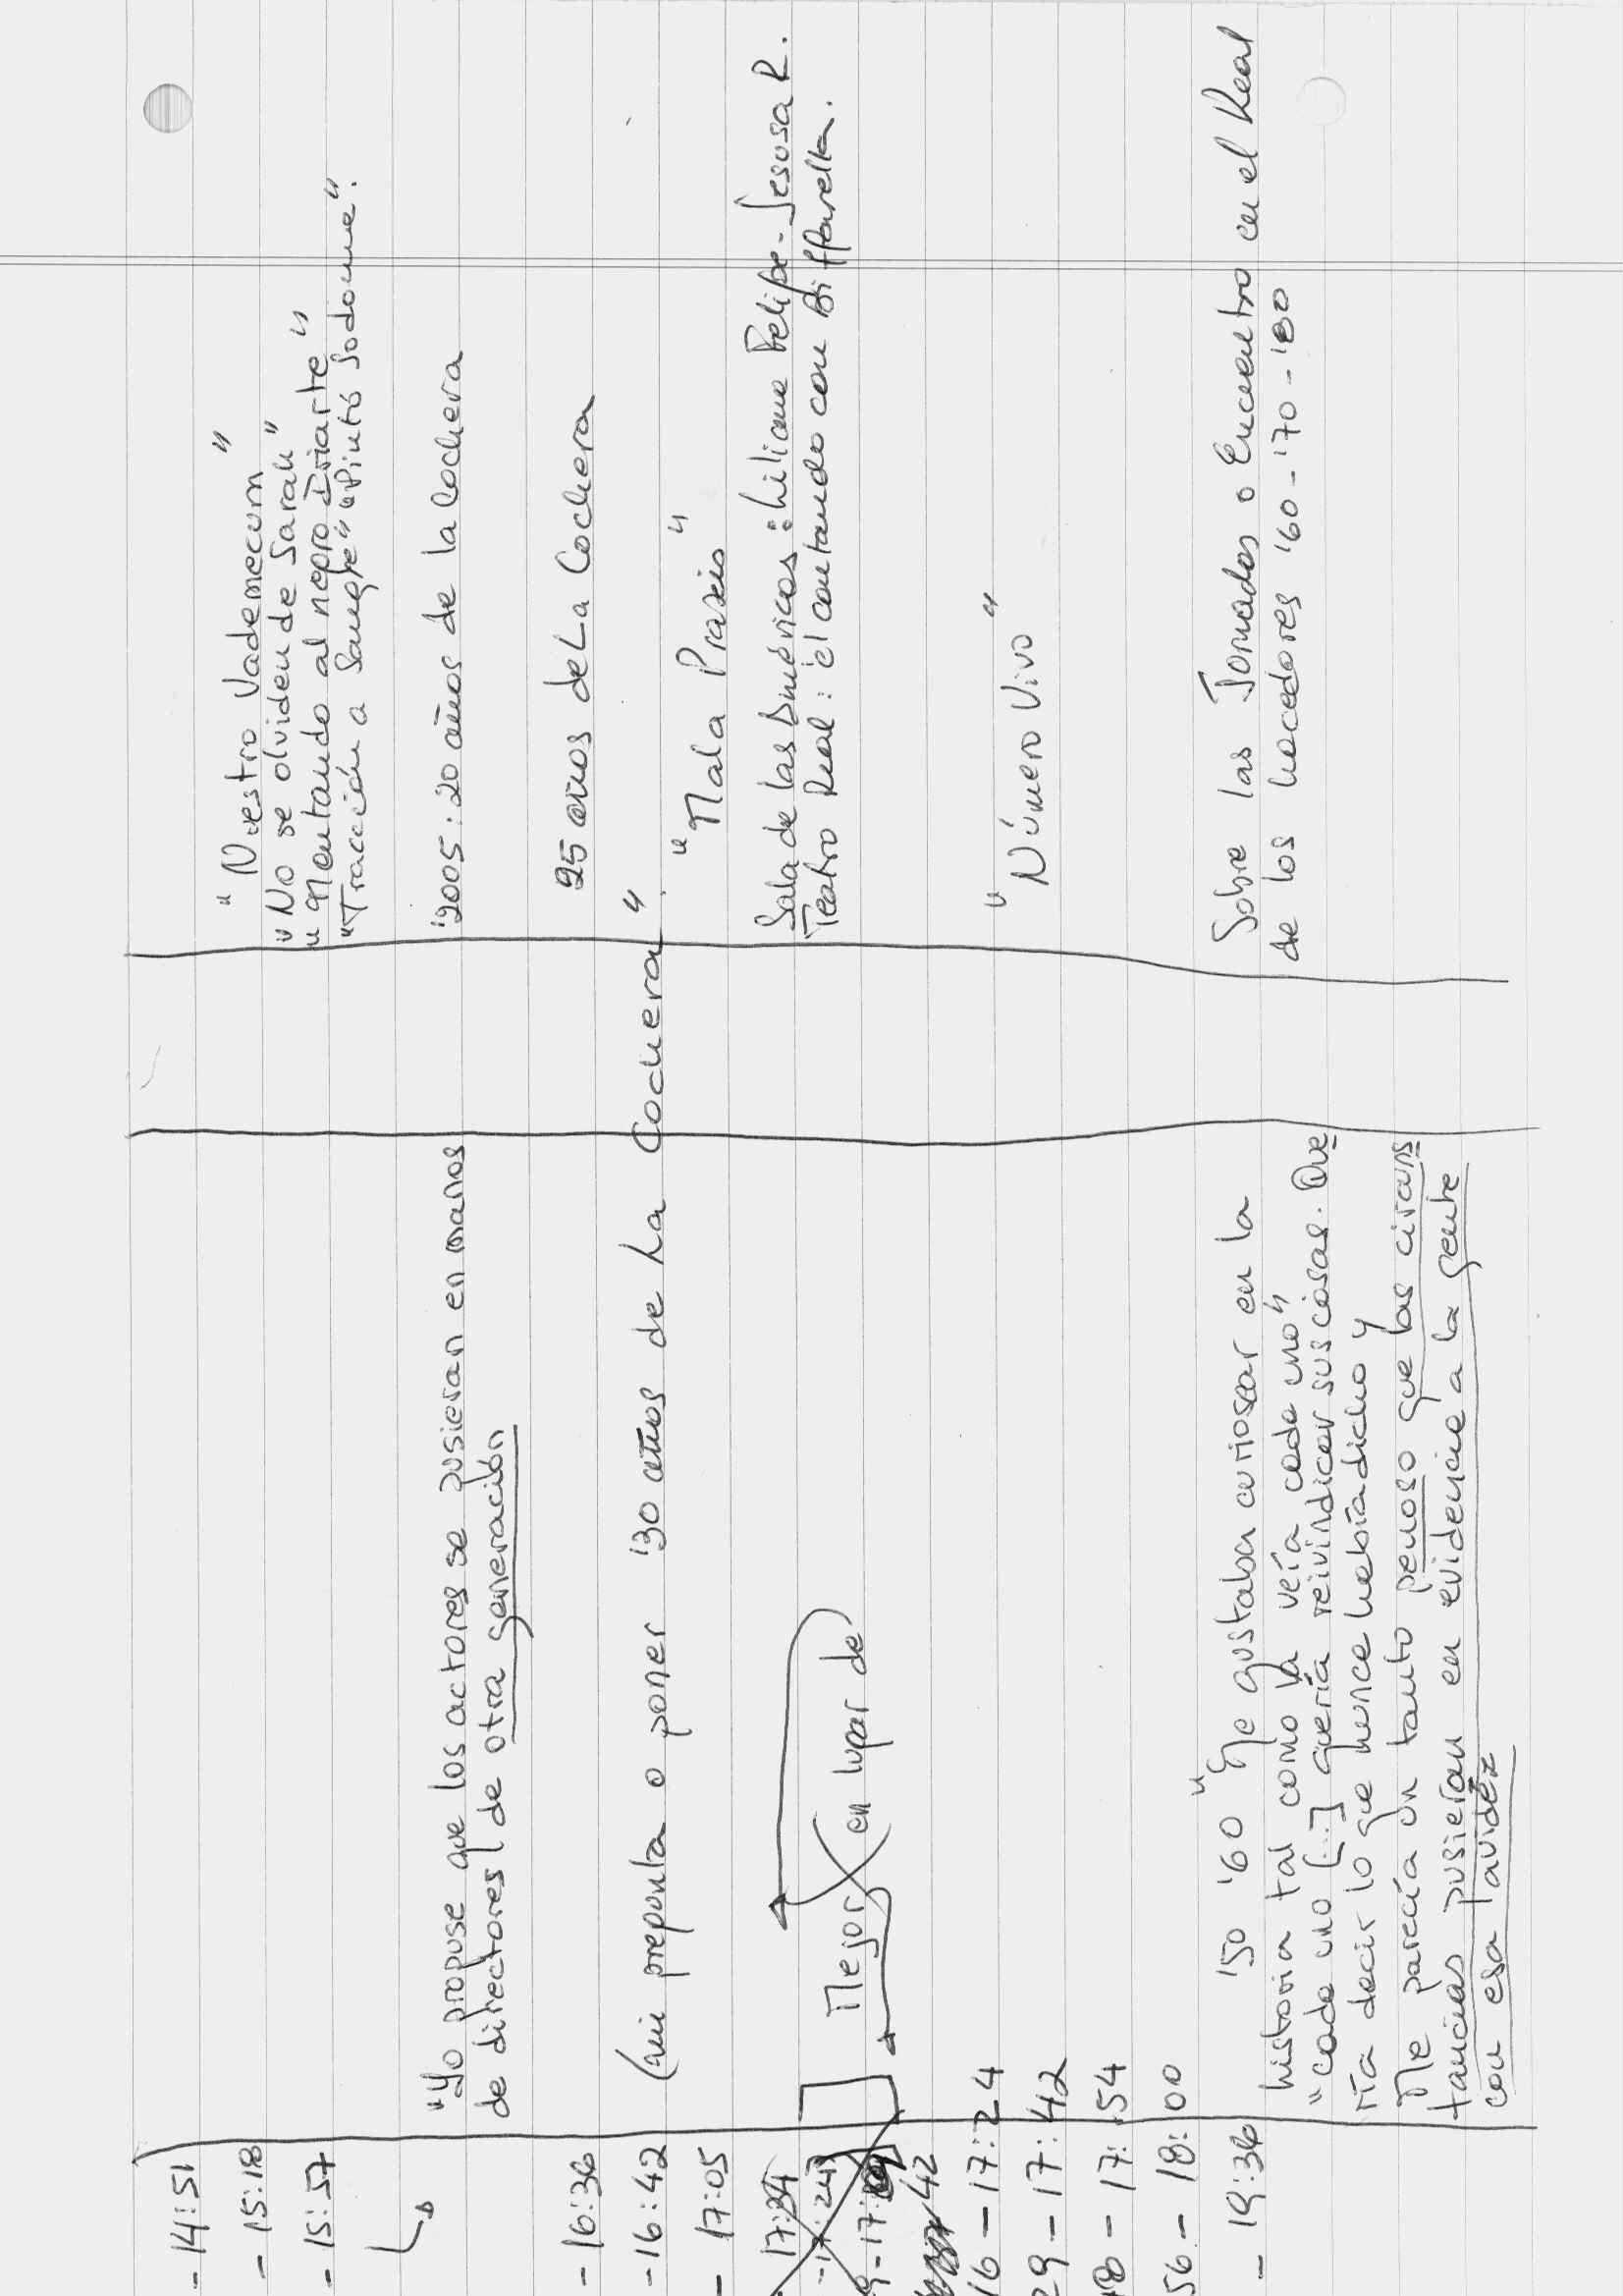 - 14:51
"Nuestro Vademecum"
- 15:18
"No se olviden de Sarah"
"Mentando al negro Iriarte"
- 15:57
"Tracción a Sangre" "Pintó Sodoma".
"Yo propuse que los actores se pusieran en manos
de directores de otra generación
'2005: 20 años de la Cochera
- 16:36
25 años de La Cochera
- 16:42
(mi pregunta o poner '30 años de La Cochera"
- 17:05
"Mala Praxis"
17:34
- 17:24
Mejor en lugar de
Sala de las Américas: Liliana Felipe - Jesusa R.
Teatro Real: él cantando con Biffarella.
42
16 - 17:24
29 - 17:42
"Número Vivo"
48 - 17:54
56 - 18:00
- 19:36
'50 '60 "Me gustaba curiosear en la
historia tal como la veía cada uno"
"cada uno [...] quería reivindicar sus cosas. Que
ría decir lo que nunca había dicho y
Me parecía un tanto penoso que las circuns
tancias pusieran en evidencia a la gente
con esa avidez
Sobre las Jornadas o Encuentro en el Real
de los hacedores '60 - '70 - '80